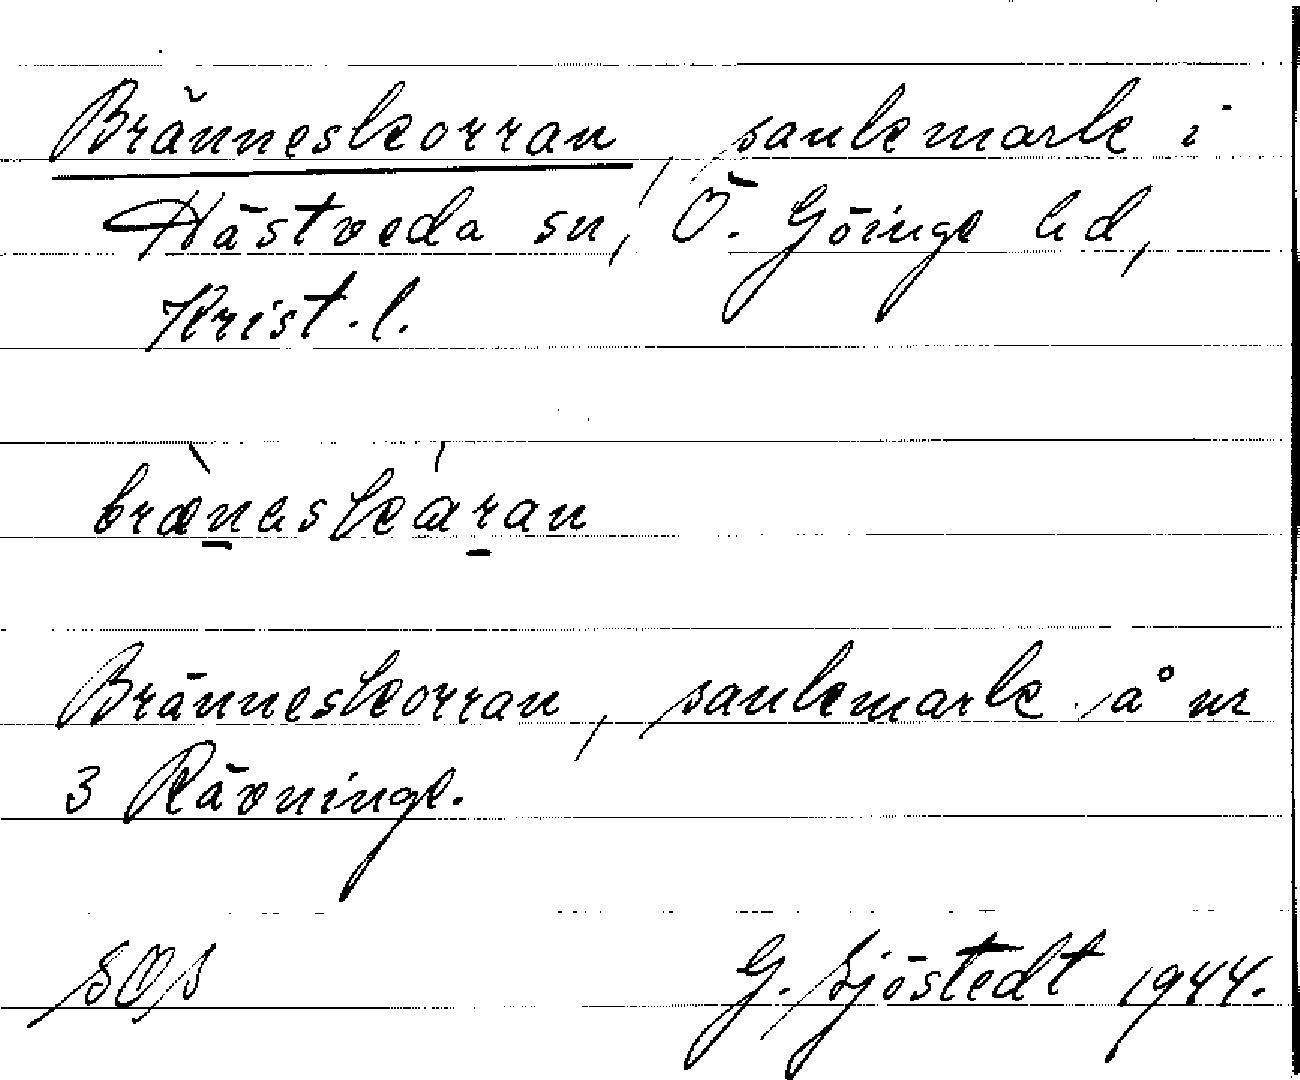 Bränneskorran, sankmark i
Hästveda sn, Ö. Göinge hd,
Krist. l.
brænəskåran
Bränneskorran, sankmark å nr
3 Rävninge.
SOS G. Sjöstedt 1944.